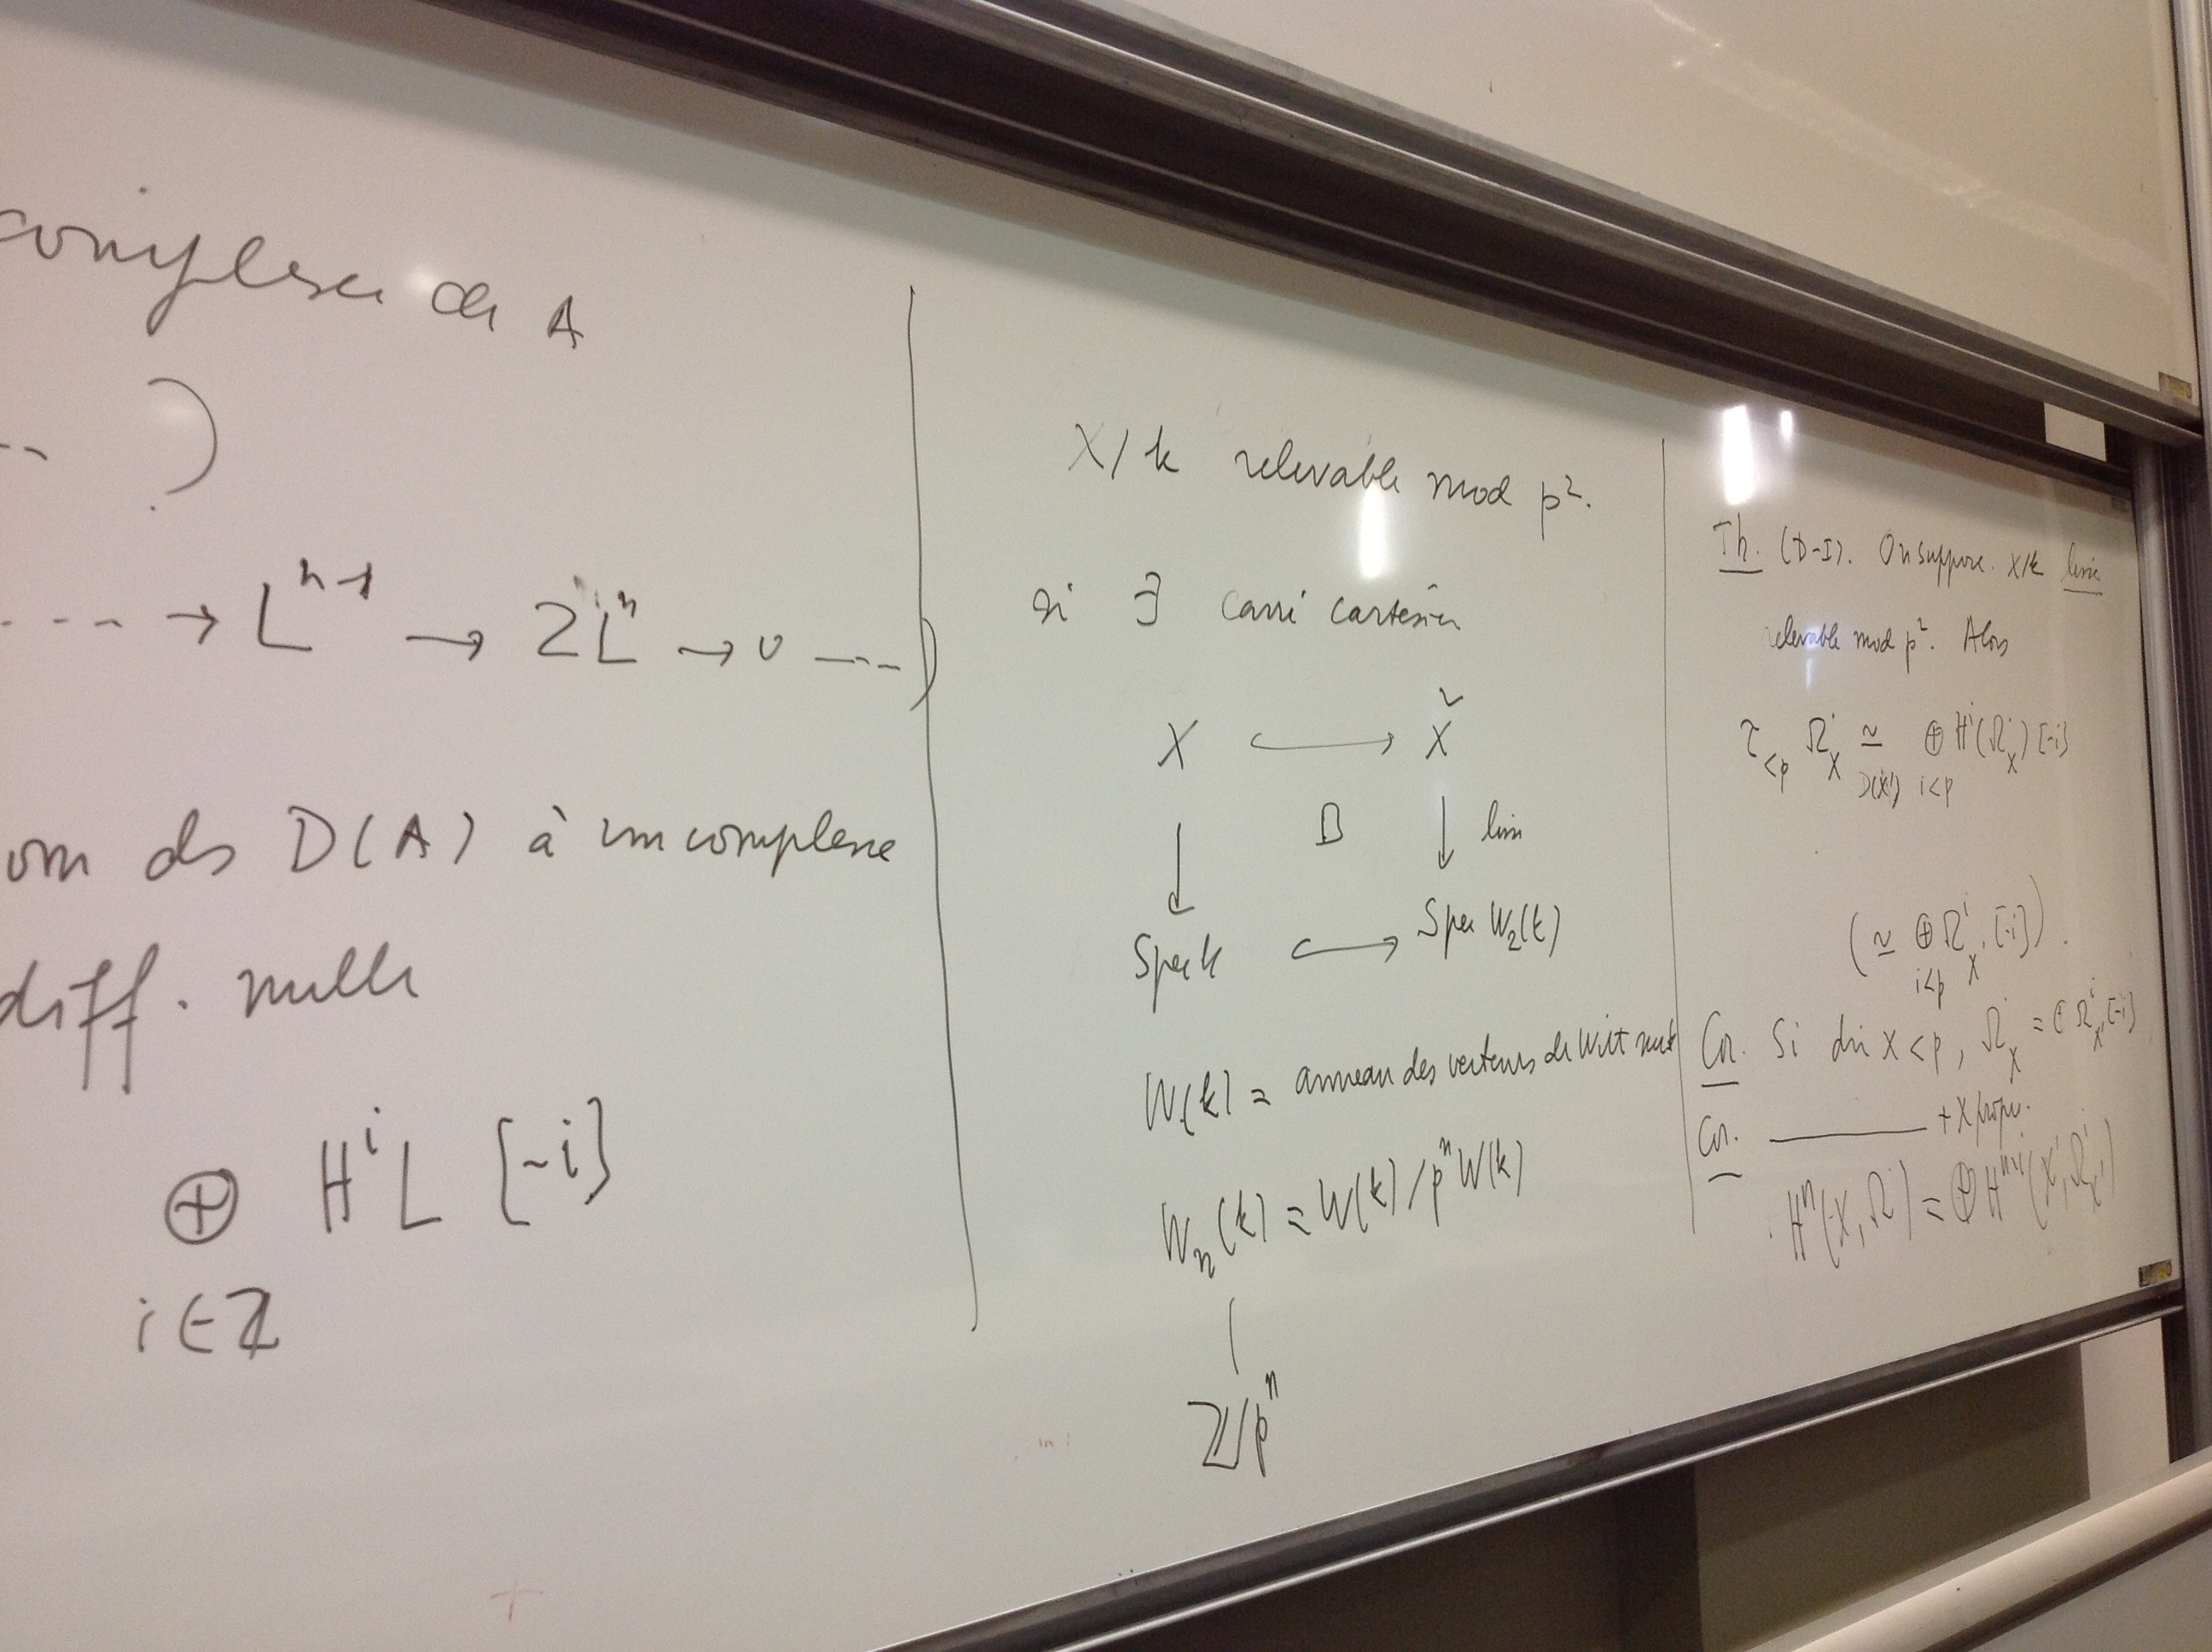 complexe de A
-- )
---- → L^{n-1} → ZL^n → 0 ---)
om ds D(A) à un complexe
diff. nulle
⊕ H^i L [-i]
i∈Z
X/k relevable mod p².
si ∃ carré cartésien
X ↪ X̃
↓ □ ↓ lisse
Spec k ↪ Spec W₂(k)
W(k) = anneau des vecteurs de Witt sur k
W_n(k) = W(k)/p^n W(k)
|
Z/p^n
Th. (D-I). On suppose X/k lisse
relevable mod p². Alors
τ_{<p} Ω^·_X ≃_{D(X')} ⊕_{i<p} H^i(Ω^·_X)[-i]
(≃ ⊕_{i<p} Ω^i_{X'}[-i]).
Cor. Si dim X < p, Ω^·_X = ⊕ Ω^i_{X'}[-i]
Cor. ———— + X propre.
H^n(X, Ω^·) = ⊕ H^{n-i}(X', Ω^i_{X'})